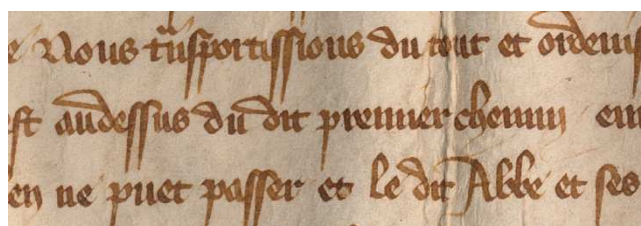 e Nous t͛nsportissions du tout et ordenis
est audessus du dit premier chemin en
en ne puet passer et le dit Abbe et ses